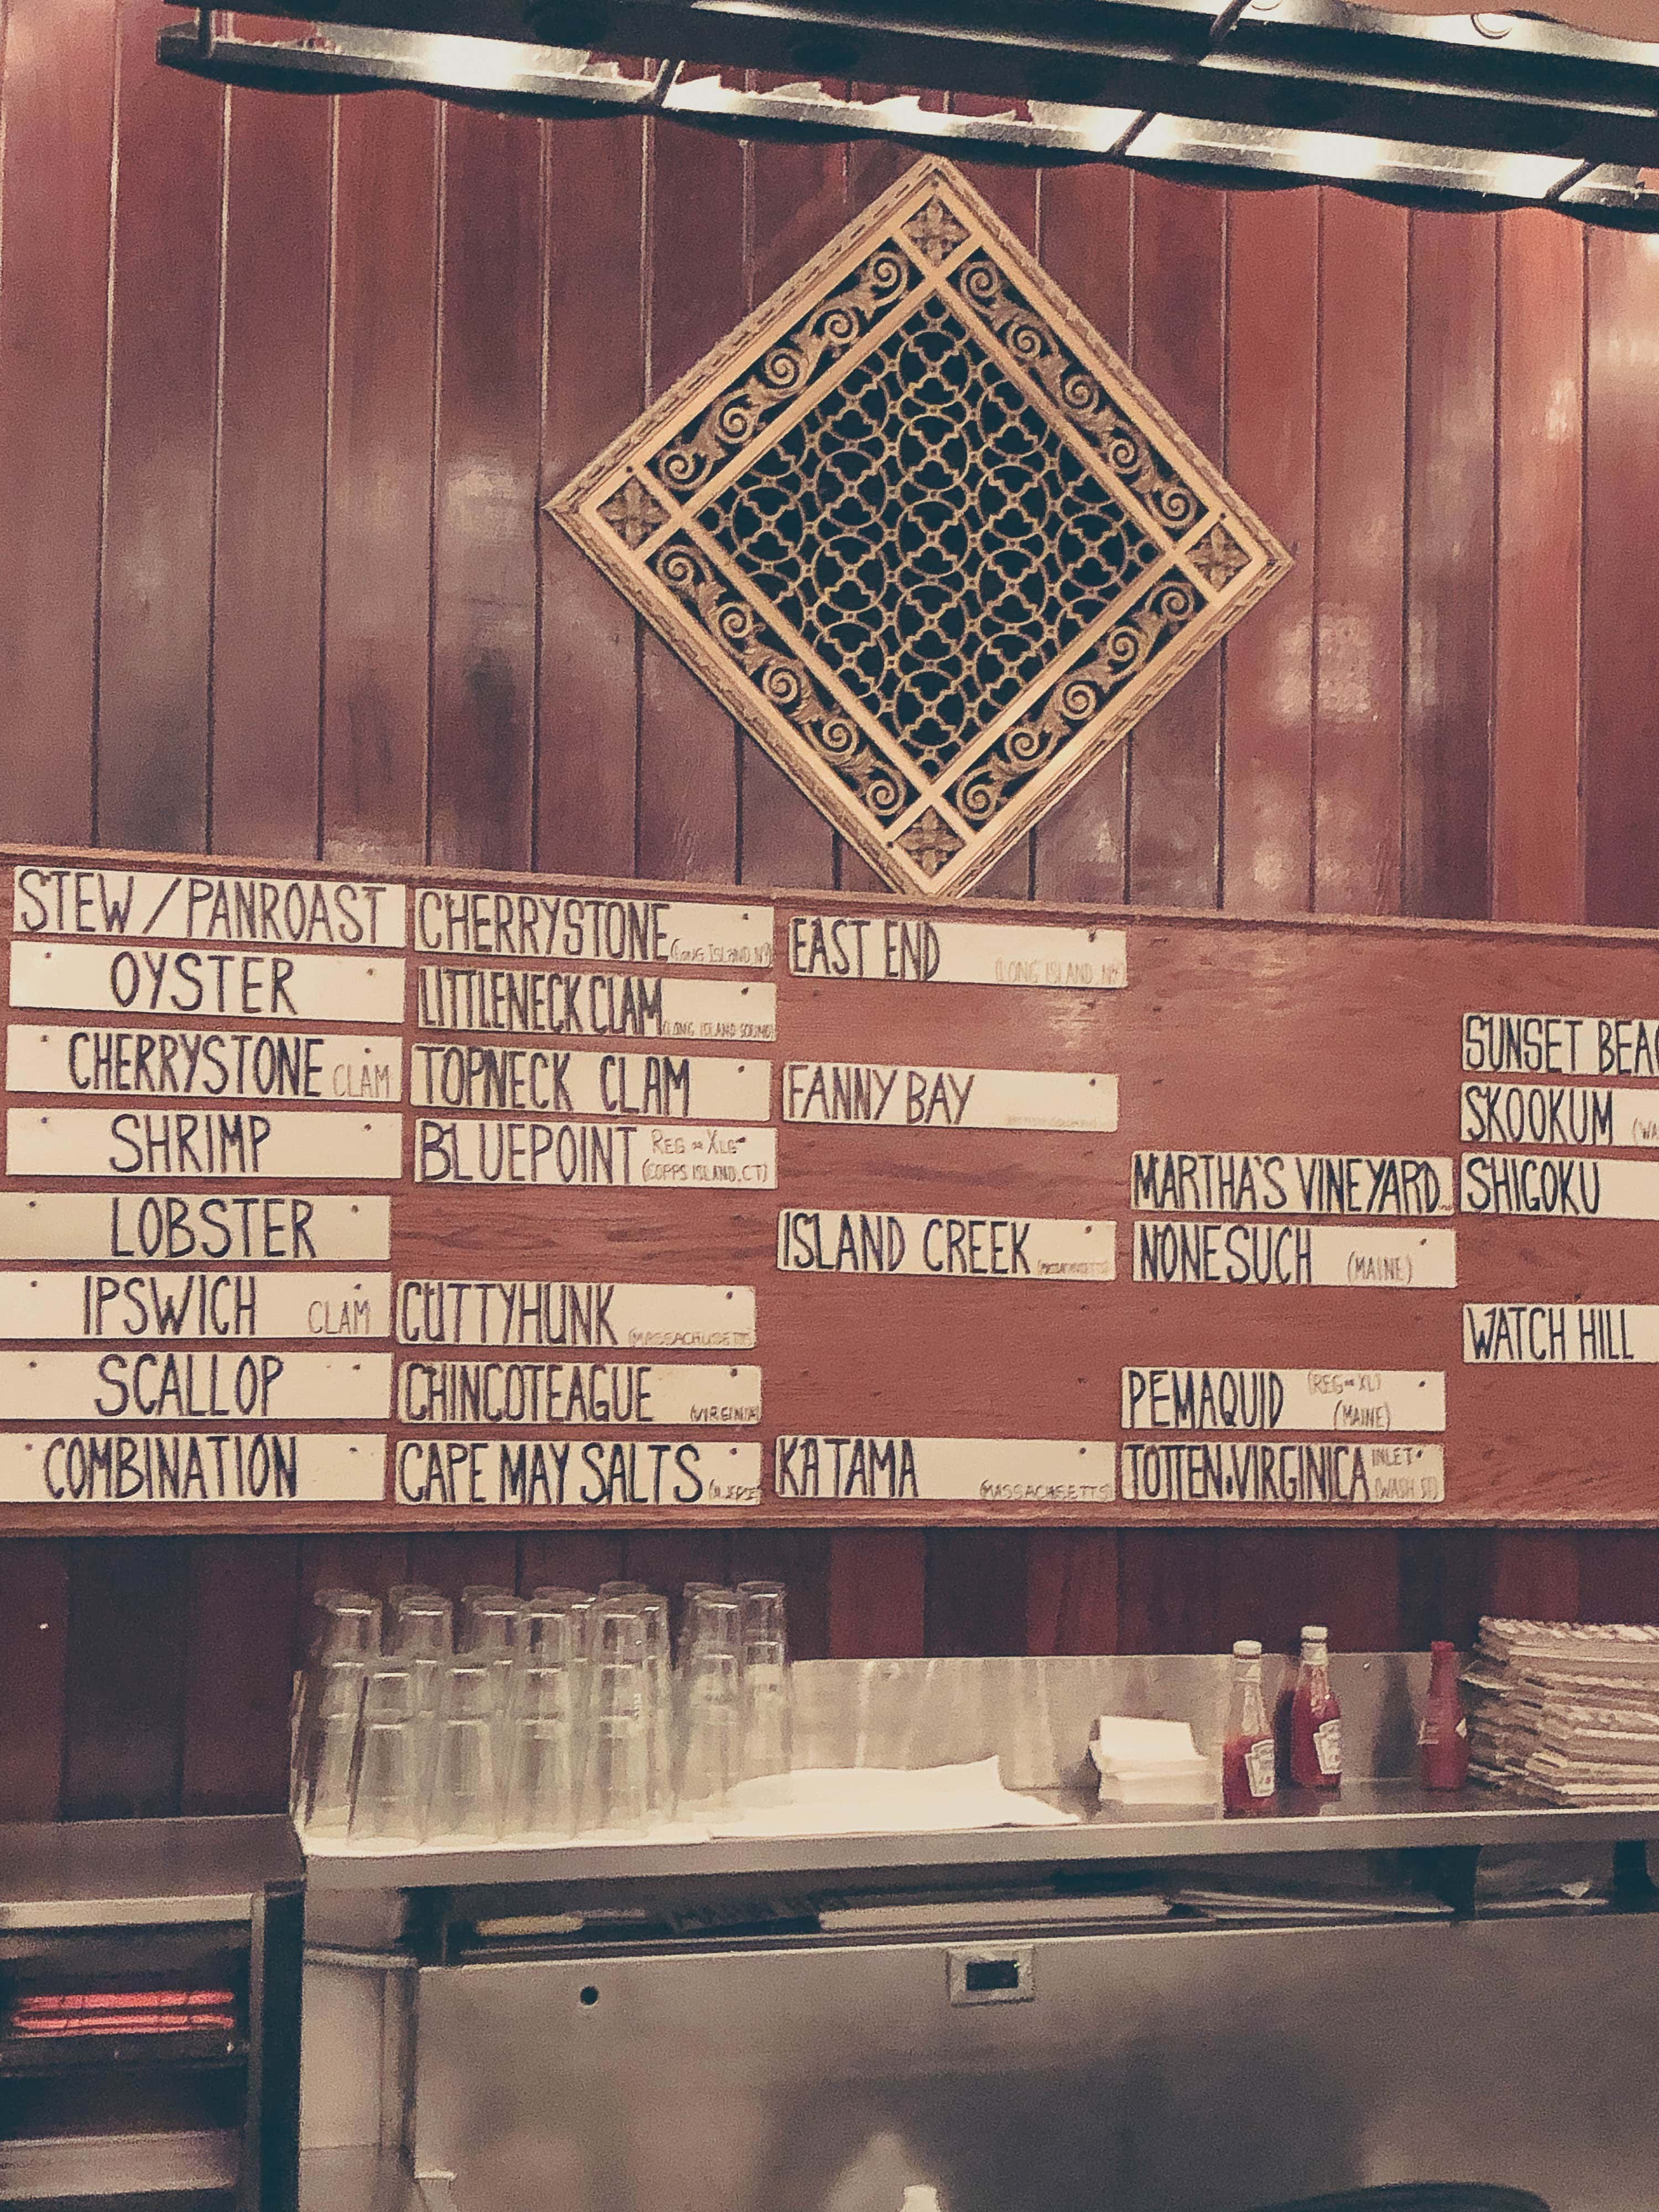 STEW / PANROAST
OYSTER
CHERRYSTONE CLAM
SHRIMP
LOBSTER
IPSWICH CLAM
SCALLOP
COMBINATION
CHERRYSTONE (LONG ISLAND NY)
LITTLENECK CLAM (LONG ISLAND SOUND)
TOPNECK CLAM
BLUEPOINT REG - XLG
(COPPS ISLAND, CT)
CUTTYHUNK (MASSACHUSETTS
CHINCOTEAGUE (VIRGINIA)
CAPE MAY SALTS
EAST END (LONG ISLAND, NY)
FANNY BAY
ISLAND CREEK
KATAMA (MASSACHSETTS)
MARTHA'S VINEYARD
NONESUCH (MAINE)
PEMAQUID (REG - XL)
(MAINE)
TOTTEN VIRGINICA INLET
(WASH ST)
SUNSET BEAC
SKOOKUM (WA
SHIGOKU
WATCH HILL